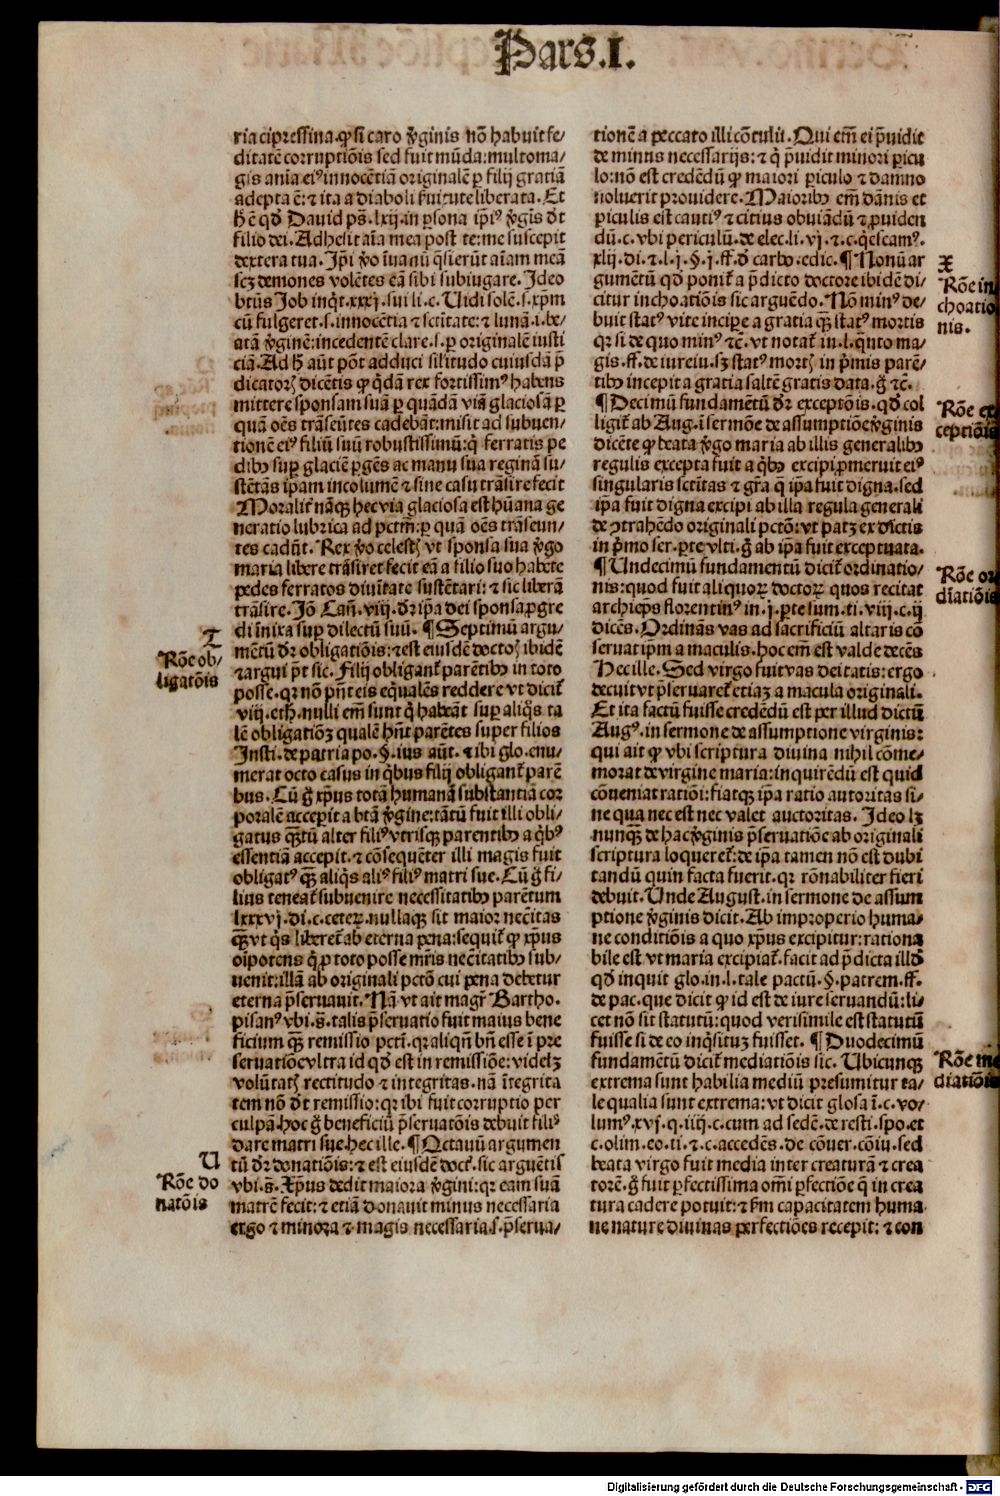 Pars.I.
ria cipressina. ꝙ si caro v̉ginis nõ habuit fe⸗
ditatē corruptiõis sed fuit mũda: multoma⸗
gis aĩa eiꝰ innocētiã originalē ꝑ filij gratiã
adepta ē: ⁊ ita a diaboli ẜuitute liberata. Et
h̉ ē qđ Dauid ps̃. lxij. in ꝑsona ip̃iꝰ v̉gĩs d̉t
filio dei. Adhesit aĩa mea post te: me suscepit
dextera tua. Ip̃i v̉o ĩuanũ q̃sierũt aĩam meã
scꝫ demones volētes eã sibi subiugare. Ideo
btũs Job inq̇t. xxxj. sui li. c. Uidi solē. s. xp̃m
cũ fulgeret. s. innocētia ⁊ sctĩtate: ⁊ lunã. i. be⸗
atã v̉ginē: incedentē clare. s. ꝑ originalē iusti
ciã. Ad h̉ aũt põt adduci sil̃itudo cuiusdã p̃
dicatoꝝ dicētis ꝙ q̇dã rex fortissimꝰ habens
mittere sponsam suã ꝑ quãdã viã glaciosã ꝑ
quã oẽs trãseũtes cadebãt: misit ad subuen⸗
tionē eiꝰ filiũ suũ robustissimũ: q̇ ferratis pe
dibꝰ suꝑ glaciē ꝑgēs ac manu sua reginã su⸗
stētãs ip̃am incolumē ⁊ sine casu trãsire fecit
Moralit̃ nãqꝫ hec via glaciosa est hũana ge
neratio lubrica ad pctm̃: ꝑ quã oẽs trãseun⸗
tes cadũt. Rex v̉o celestꝭ vt sponsa sua v̉go
maria libere trãsiret fecit eã a filio suo habere
pedes ferratos diuĩtate sustētari: ⁊ sic liberã
trãsire. Jõ Cañ. viij. d̉r ip̃a dei sponsa ꝓgre
di ĩnixa suꝑ dilectũ suũ. ¶ Septimũ argu⸗
mētũ d̉r obligatiõis: ⁊ est eiusdē doctoꝭ ibidē
⁊ argui p̃t sic. Filij obligant̃ parētibꝰ in toto
posse. qꝛ nõ pñt eis eq̃ualēs reddere vt dicit̃
viij. eth. nulli em̃ sunt q̇ habeãt suꝑ aliq̇s ta
lē obligatiõꝫ qualē hñt parētes super filios
Insti. de patria po. §. ius aũt. ⁊ ibi glo. enu⸗
merat octo casus in q̇bus filij obligant̃ parē
bus. Cũ g̉ xp̃us totã humanã substantiã cor
poralē accepit a btã v̉gine: tãtũ fuit illi obli⸗
gatus q̃ꝫtũ alter filiꝰ vtrisqꝫ parentibꝰ a q̇bꝰ
essentiã accepit. ⁊ cõsequēter illi magis fuit
obligatꝰ q̃ꝫ aliq̇s aliꝰ filiꝰ matri sue. Cũ g̉ fi⸗
lius teneat̃ subuenire necessitatibꝰ parētum
lxxxvj. di. c. ceterꝝ. nullaqꝫ sit maior nec̃itas
q̃ꝫ vt q̇s liberet̃ ab eterna pena: sequit̃ ꝙ xp̃us
oĩpotens q̇ ꝓ toto posse mr̃is nec̃itatibꝰ sub⸗
uenit: illã ab originali pctõ cui pena debetur
eterna p̃seruauit. Nã vt ait magr̃ Bartho.
pisanꝰ vbi. s̃. talis p̃seruatio fuit maius bene
ficium q̃ꝫ remissio pctĩ. qꝛ aliqñ bñ esse ĩ pre
seruatiõe vltra id qđ est in remissiõe: videlꝫ
volũtatꝭ rectitudo ⁊ integritas. nã ĩtegrita
tem nõ d̉t remissio: qꝛ ibi fuit corruptio per
culpã. hoc g̉ beneficiũ p̃seruatõis debuit filiꝰ
dare matri sue. hec ille. ¶ Octauũ argumen
tũ d̉r donatiõis: ⁊ est eiusdē doct̃. sic arguētis
vbi. s̃. Xp̃us dedit maiora v̉gini: qꝛ eam suã
matrē fecit: ⁊ etiã donauit minus necessaria
ergo ⁊ minora ⁊ magis necessaria. s. p̃serua⸗
T
Rõe ob⸗
ligatõis
U
Rõe do
natõis
tionē a peccato illi cõtulit. Qui em̃ ei p̃uidit
de minus necessarijs: ⁊ q̇ p̃uidit minori ꝑicu
lo: nõ est credēdũ ꝙ maiori ꝑiculo ⁊ damno
noluerit prouidere. Maioribꝰ em̃ dãnis et
ꝑiculis est cautiꝰ ⁊ citius obuiãdũ ⁊ ꝓuiden
dũ. c. vbi periculũ. de elec. li. vj. ⁊ c. q̇escamꝰ.
xlij. di. ⁊. l. j. §. j. ff. d̉ carbo. edic. ¶ Nonũ ar
gumētũ qđ ponit̃ a p̃dicto doctore ibidē di⸗
citur inchoatiõis sic arguēdo. Nõ minꝰ de⸗
buit statꝰ vite incipe a gratia q̃ꝫ statꝰ mortis
qꝛ si de quo minꝰ ⁊c̃. vt notat̃ in. l. q̇nto ma⸗
gis. ff. de iureiu. sꝫ statꝰ mortꝭ in p̃mis parē⸗
tibꝰ incepit a gratia saltē gratis data. g̉ ⁊c̃.
¶ Decimũ fundamētũ d̉r exceptõis. qđ col
ligit̃ ab Aug. ĩ sermõe de assumptiõe v̉ginis
dicēte ꝙ beata v̉go maria ab illis generalibꝰ
regulis excepta fuit a q̇bꝰ excipi ꝓmeruit eiꝰ
singularis sctĩtas ⁊ gr̃a q̃ ip̃a fuit digna. sed
ip̃a fuit digna excipi ab illa regula generali
de ↄtrahēdo originali pctõ: vt patꝫ ex dictis
in p̃mo ser. ꝑte vlti. g̉ ab ip̃a fuit exceptuata.
¶ Undecimũ fundamentũ dicit̃ ordinatio⸗
nis: quod fuit aliquorꝝ doctorꝝ quos recitat
archiep̃s florentinꝰ in. j. ꝑte sum. ti. viij. c. ij
dicēs. Ordinãs vas ad sacrificiũ altaris cõ
seruat ip̃m a maculis. hoc em̃ est valde decēs
Hec ille. Sed virgo fuit vas deitatis: ergo
decuit vt p̃seruaret̃ etiaꝫ a macula originali.
Et ita factũ fuisse credēdũ est per illud dictũ
Augꝰ. in sermone de assumptione virginis:
qui ait ꝙ vbi scriptura diuina nihil cõme⸗
morat de virgine maria: inquirēdũ est quid
cõueniat ratiõi: fiatqꝫ ip̃a ratio autoritas si⸗
ne qua nec est nec valet auctoritas. Ideo lꝫ
nunqꝫ de hac v̉ginis p̃seruatiõe ab originali
scriptura loqueret̃: de ip̃a tamen nõ est dubi
tandũ quin facta fuerit. qꝛ rõnabiliter fieri
debuit. Unde August. in sermone de assum
ptione v̉ginis dicit. Ab improperio huma⸗
ne conditiõis a quo xp̃us excipitur: rationa
bile est vt maria excipiat̃. facit ad p̃dicta illđ
qđ inquit glo. in. l. tale pactũ. §. patrem. ff.
de pac. que dicit ꝙ id est de iure seruandũ: li⸗
cet nõ sit statutũ: quod verisimile est statutũ
fuisse si de eo inq̇situꝫ fuisset. ¶ Duodecimũ
fundamētũ dicit̃ mediatiõis sic. Ubicunqꝫ
extrema sunt habilia mediũ presumitur ta⸗
le qualia sunt extrema: vt dicit glosa ĩ. c. vo⸗
lumꝰ. xvj. q. iiij. c. cum ad sedē. de resti. spo. et
c. olim. eo. ti. ⁊ c. accedēs. de cõuer. cõiu. sed
beata virgo fuit media inter creaturã ⁊ crea
torē. g̉ fuit ꝑfectissima om̃i ꝑfectiõe q̃ in crea
tura cadere potuit: ⁊ ẜm capacitatem huma
ne nature diuinas perfectiões recepit: ⁊ con
X
Rõe in
choatio
nis.
Rõe ex
ceptiõis
Rõe or
diatiõis
Rõe me
diatiõis
Digitalisierung gefördert durch die Deutsche Forschungsgemeinschaft - DFG